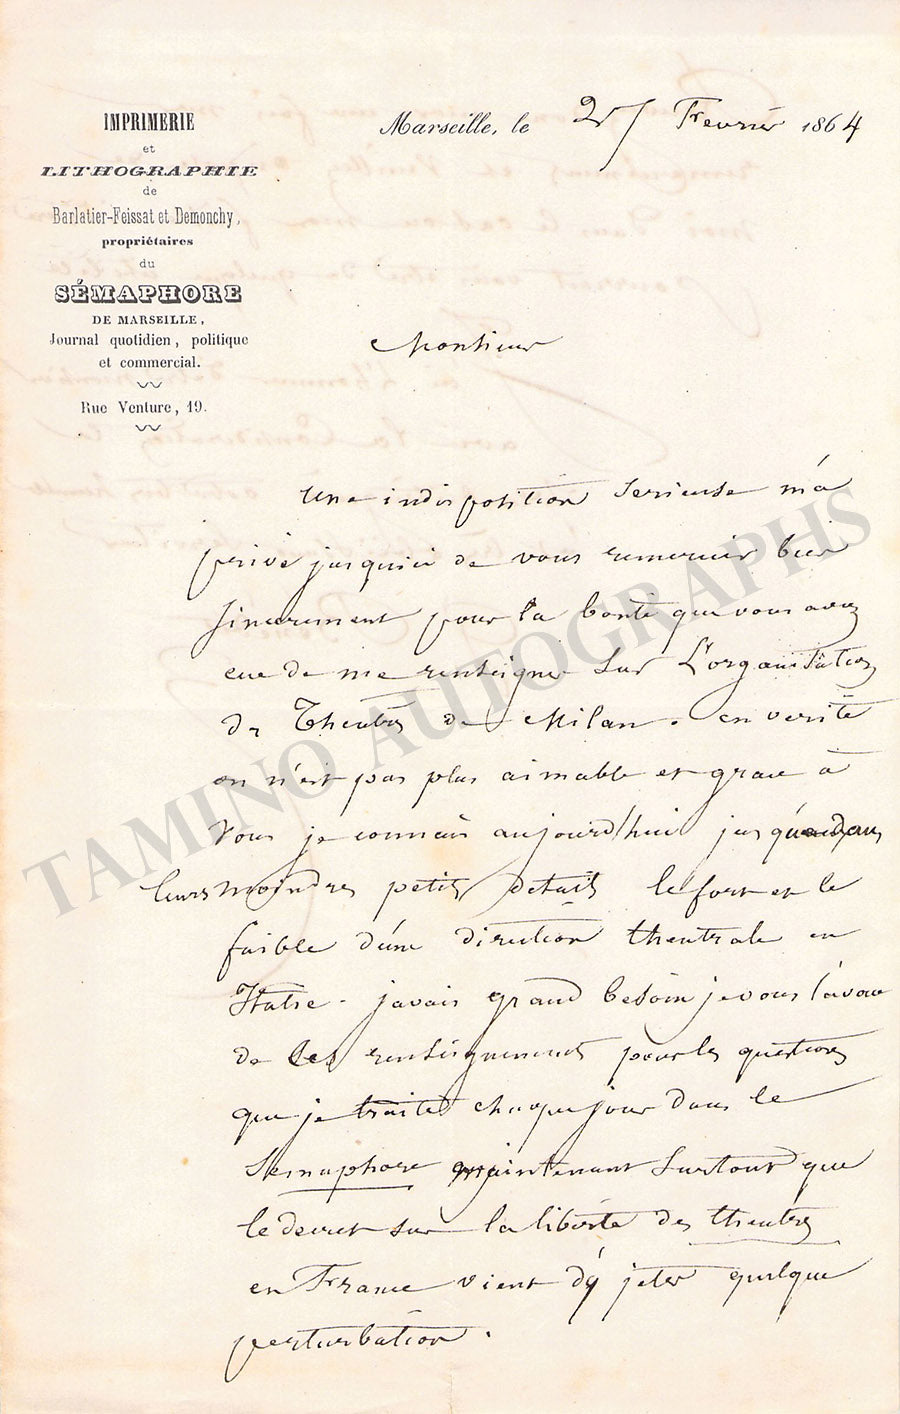 IMPRIMERIE
et
LITHOGRAPHIE
de
Barlatier-Feissat et Demonchy,
propriétaires
du
SÉMAPHORE
DE MARSEILLE,
Journal quotidien, politique
et commercial.
Rue Venture, 19.
Marseille, le 25 Fevrier 1864
Monsieur
Une indisposition serieuse m'a
privé jusqu'ici de vous remercier bien
sincerement pour la bonté que vous avez
eue de me renseigner sur l'organisation
de Theatres de Milan. en verité
on n'est pas plus aimable et grace à
vous je connais aujourd'hui jusque dans
leurs moindres petits details le fort et le
faible d'une direction theatrale en
Italie. j'avais grand besoin je vous l'avoue
de ces renseignements pour les questions
que je traite chaque jour dans le
Semaphore maintenant surtout que
le decret sur la liberté des theatres
en France vient d'y jeter quelque
perturbation.
TAMINO AUTOGRAPHS